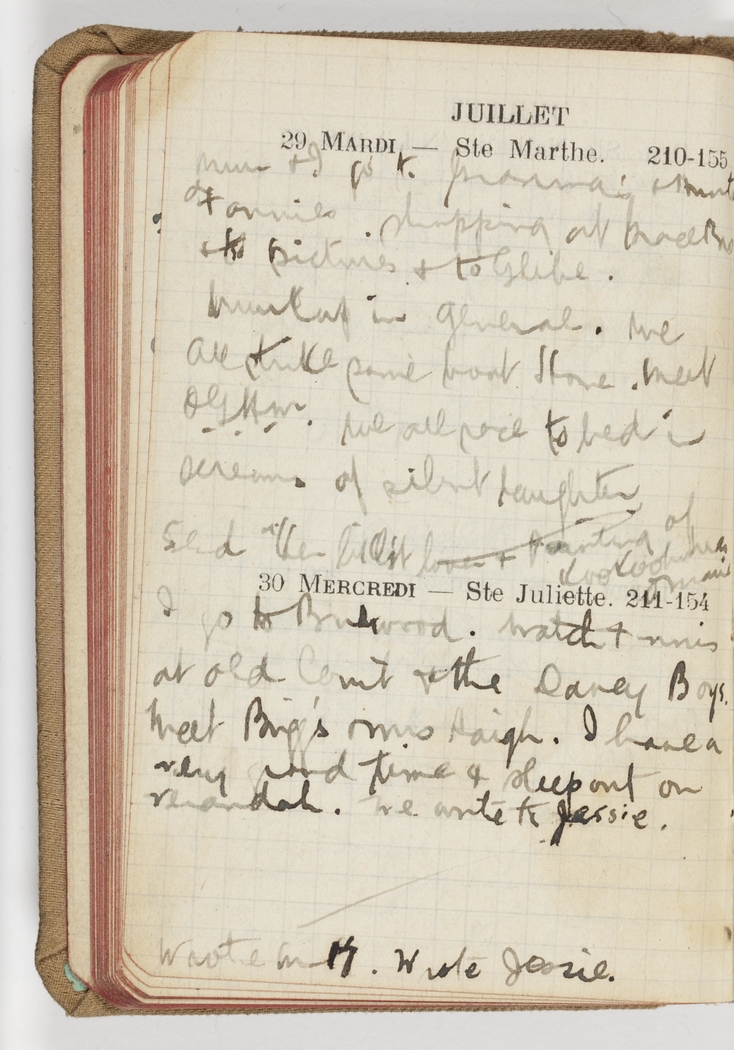 JUILLET
29 MARDI — Ste Marthe. 210-155
mum & I go to Grandma's & Aunt
Fannies. shopping at
& to pictures & to Glebe.
in General. We
all take some boat Shove. meet
We all race to bed in
screams of silent laughter
Send the & Painting of
Kookooburras
30 MERCREDI — Ste Juliette. 211-154
I go to Burwood. Watch tennis
at old Court & the Davey Boys.
Meet Biggs Haigh. I have a
very good time & sleep out on
verandah. We write to Jessie.
Wrote K. Wrote Jessie.